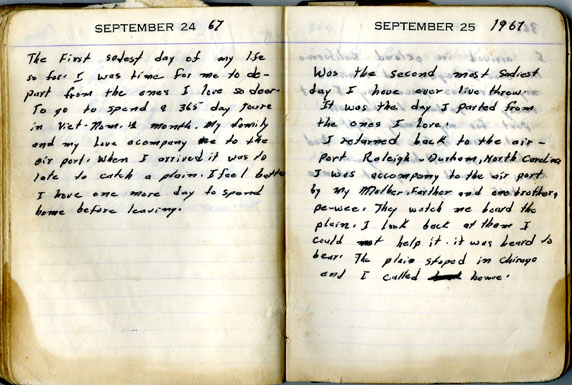 SEPTEMBER 24 67
The First sadest day of my life
so for. I was time for me to de-
part from the ones I love so dear.
To go to spend a 365 day toure
in Viet-Nam. 12 month. My family
and my Love acompany me to the
air port. When I arrived it was to
late to catch a plain. I feel better
I have one more day to spend
home before leaving.
SEPTEMBER 25 1967
Was the second most sadiest
day I have ever live threw.
It was the day I parted from
the ones I Love.
I returned back to the air-
port Raleigh-Durham, North Carolina
I was accompany to the air port
by my Mother, Farther and one brother,
pe-wee. They watch me board the
plain. I look back at them I
could not help it. it was heard to
bear. The plain stoped in Chicago
and I called home.